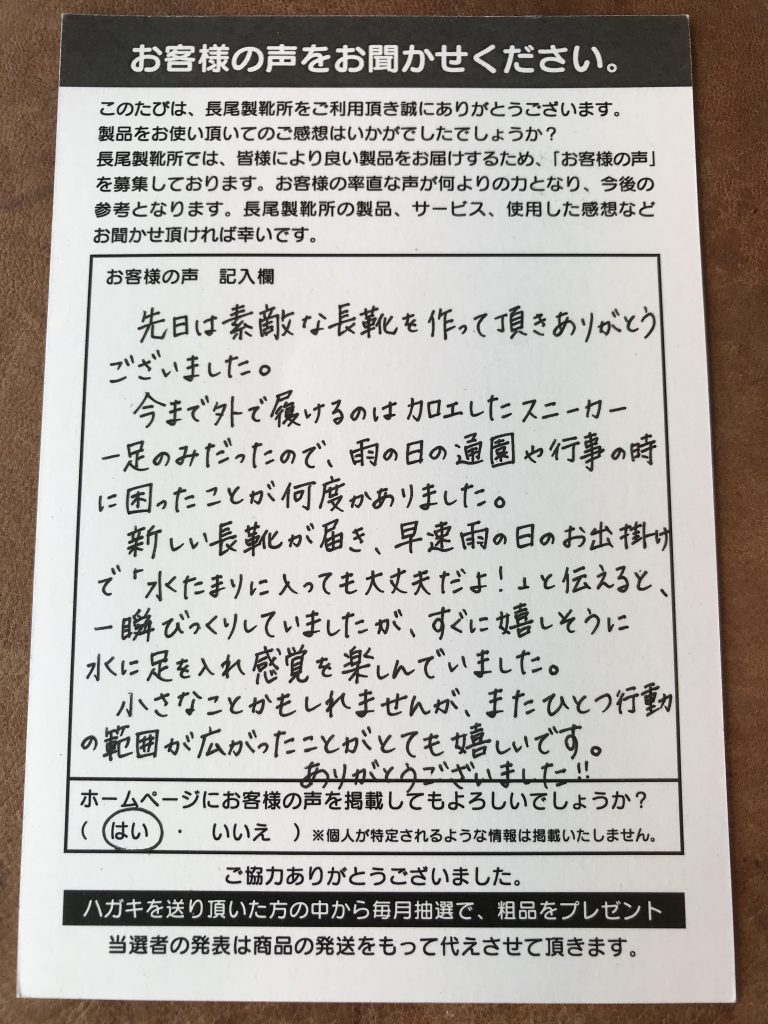 お客様の声をお聞かせください。
このたびは、長尾製靴所をご利用頂き誠にありがとうございます。
製品をお使い頂いてのご感想はいかがでしたでしょうか？
長尾製靴所では、皆様により良い製品をお届けするため、「お客様の声」
を募集しております。お客様の率直な声が何よりの力となり、今後の
参考となります。長尾製靴所の製品、サービス、使用した感想など
お聞かせ頂ければ幸いです。
お客様の声　記入欄
先日は素敵な長靴を作って頂きありがとう
ございました。
今まで外で履けるのは加工したスニーカー
一足のみだったので、雨の日の通園や行事の時
に困ったことが何度かありました。
新しい長靴が届き、早速雨の日のお出掛け
で「水たまりに入っても大丈夫だよ！」と伝えると、
一瞬びっくりしていましたが、すぐに嬉しそうに
水に足を入れ感覚を楽しんでいました。
小さなことかもしれませんが、またひとつ行動
の範囲が広がったことがとても嬉しいです。
ありがとうございました!!
ホームページにお客様の声を掲載してもよろしいでしょうか？
（　はい　・　いいえ　）※個人が特定されるような情報は掲載いたしません。
ご協力ありがとうございました。
ハガキを送り頂いた方の中から毎月抽選で、粗品をプレゼント
当選者の発表は商品の発送をもって代えさせて頂きます。